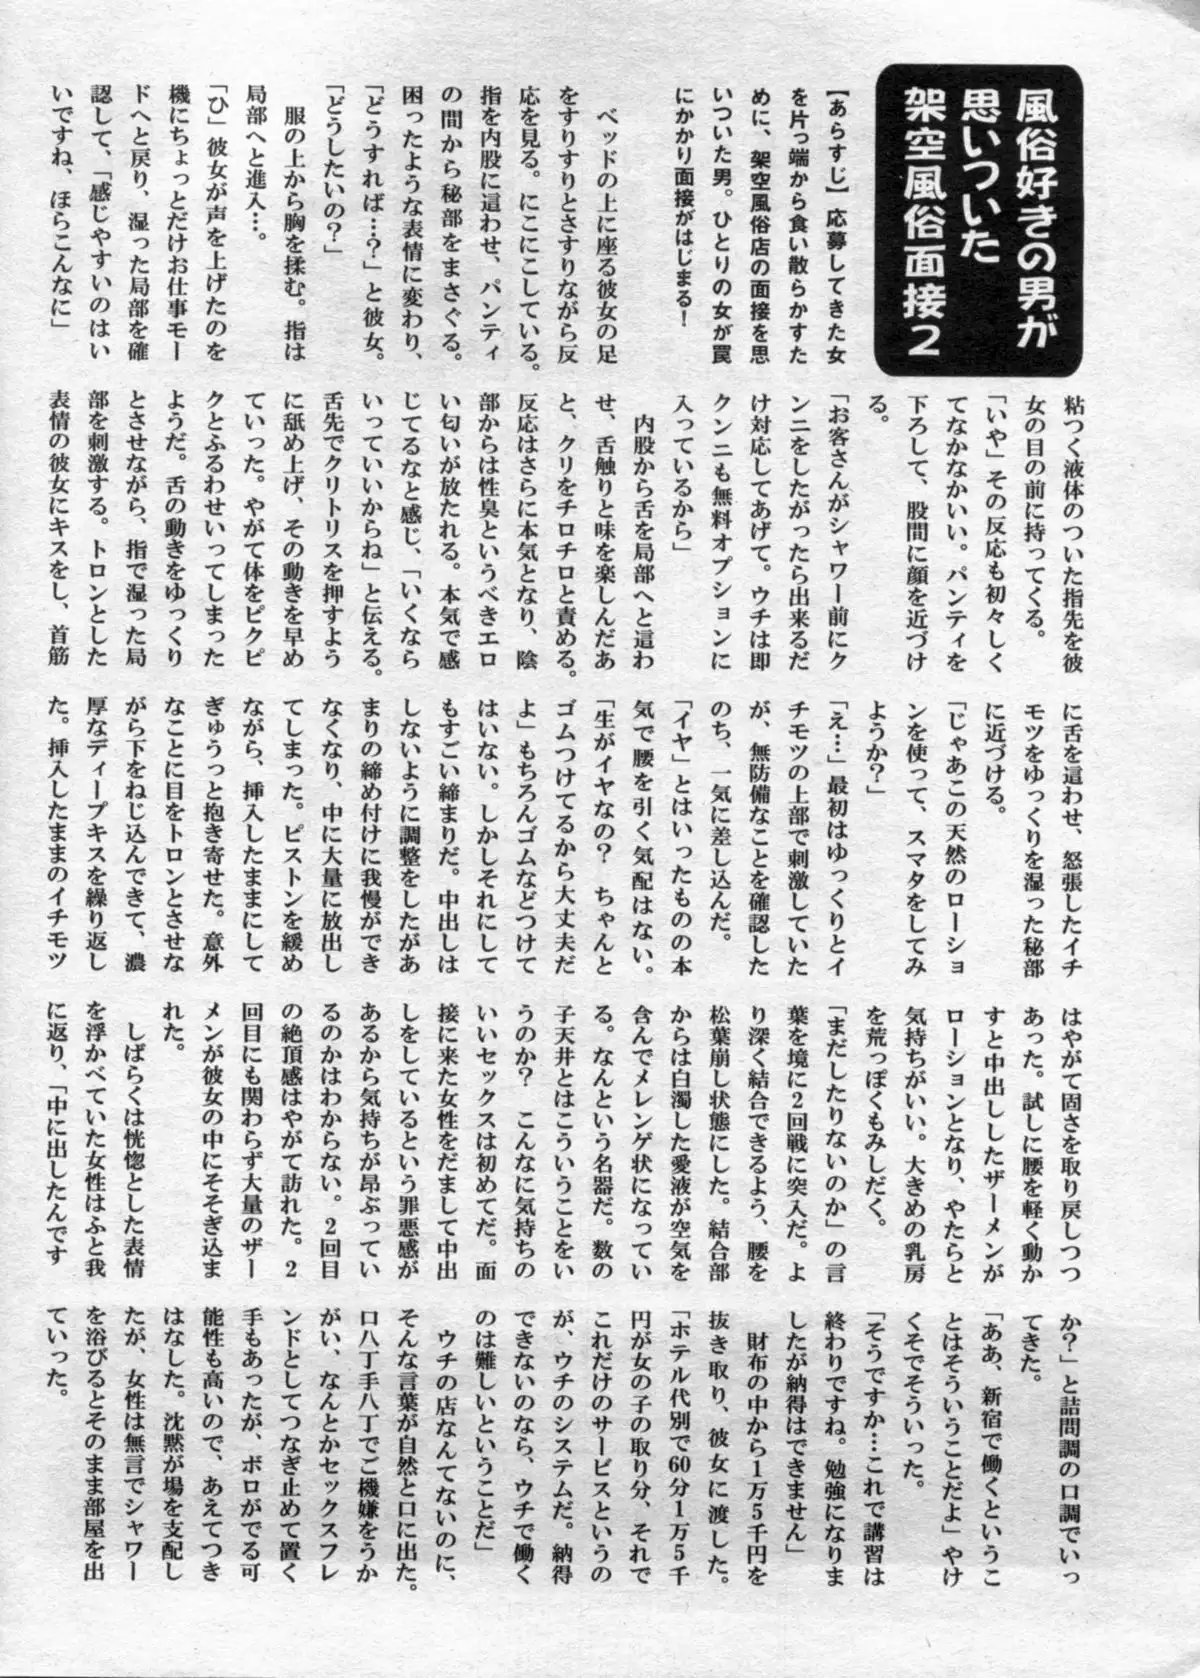 風俗好きの男が
思いついた
架空風俗面接2
【あらすじ】応募してきた女
を片っ端から食い散らかすた
めに、架空風俗店の面接を思
いついた男。ひとりの女が罠
にかかり面接がはじまる!
ベッドの上に座る彼女の足
をすりすりとさすりながら反
応を見る。にこにこしている。
指を内股に這わせ、パンティ
の間から秘部をまさぐる。
困ったような表情に変わり、
「どうすれば…?」と彼女。
「どうしたいの?」
服の上から胸を揉む。指は
局部へと進入…。
「ひ」彼女が声を上げたのを
機にちょっとだけお仕事モー
ドへと戻り、湿った局部を確
認して、「感じやすいのはい
いですね、ほらこんなに」
粘つく液体のついた指先を彼
女の目の前に持ってくる。
「いや」その反応も初々しく
てなかなかいい。パンティを
下ろして、股間に顔を近づけ
る。
「お客さんがシャワー前にク
ンニをしたがったら出来るだ
け対応してあげて。ウチは即
クンニも無料オプションに
入っているから」
内股から舌を局部へと這わ
せ、舌触りと味を楽しんだあ
と、クリをチロチロと責める。
反応はさらに本気となり、陰
部からは性臭というべきエロ
い匂いが放たれる。本気で感
じてるなと感じ、「いくなら
いっていいからね」と伝える。
舌先でクリトリスを押すよう
に舐め上げ、その動きを早め
ていった。やがて体をピクピ
クとふるわせいってしまった
ようだ。舌の動きをゆっくり
とさせながら、指で湿った局
部を刺激する。トロンとした
表情の彼女にキスをし、首筋
に舌を這わせ、怒張したイチ
モツをゆっくりを湿った秘部
に近づける。
「じゃあこの天然のローショ
ンを使って、スマタをしてみ
ようか?」
「え…」最初はゆっくりとイ
チモツの上部で刺激していた
が、無防備なことを確認した
のち、一気に差し込んだ。
「イヤ」とはいったものの本
気で腰を引く気配はない。
「生がイヤなの? ちゃんと
ゴムつけてるから大丈夫だ
よ」もちろんゴムなどつけて
はいない。しかしそれにして
もすごい締まりだ。中出しは
しないように調整をしたがあ
まりの締め付けに我慢ができ
なくなり、中に大量に放出し
てしまった。ピストンを緩め
ながら、挿入したままにして
ぎゅうっと抱き寄せた。意外
なことに目をトロンとさせな
がら下をねじ込んできて、濃
厚なディープキスを繰り返し
た。挿入したままのイチモツ
はやがて固さを取り戻しつつ
あった。試しに腰を軽く動か
すと中出ししたザーメンが
ローションとなり、やたらと
気持ちがいい。大きめの乳房
を荒っぽくもみしだく。
「まだしたりないのか」の言
葉を境に2回戦に突入だ。よ
り深く結合できるよう、腰を
松葉崩し状態にした。結合部
からは白濁した愛液が空気を
含んでメレンゲ状になってい
る。なんという名器だ。数の
子天井とはこういうことをい
うのか? こんなに気持ちの
いいセックスは初めてだ。面
接に来た女性をだまして中出
しをしているという罪悪感が
あるから気持ちが昂ぶってい
るのかはわからない。2回目
の絶頂感はやがて訪れた。2
回目にも関わらず大量のザー
メンが彼女の中にそそぎ込ま
れた。
しばらくは恍惚とした表情
を浮かべていた女性はふと我
に返り、「中に出したんです
か?」と詰問調の口調でいっ
てきた。
「ああ、新宿で働くというこ
とはそういうことだよ」やけ
くそでそういった。
「そうですか…これで講習は
終わりですね。勉強になりま
したが納得はできません」
財布の中から1万5千円を
抜き取り、彼女に渡した。
「ホテル代別で60分1万5千
円が女の子の取り分、それで
これだけのサービスというの
が、ウチのシステムだ。納得
できないのなら、ウチで働く
のは難しいということだ」
ウチの店なんてないのに、
そんな言葉が自然と口に出た。
口八丁手八丁でご機嫌をうか
がい、なんとかセックスフレ
ンドとしてつなぎ止めて置く
手もあったが、ボロがでる可
能性も高いので、あえてつき
はなした。沈黙が場を支配し
たが、女性は無言でシャワー
を浴びるとそのまま部屋を出
ていった。